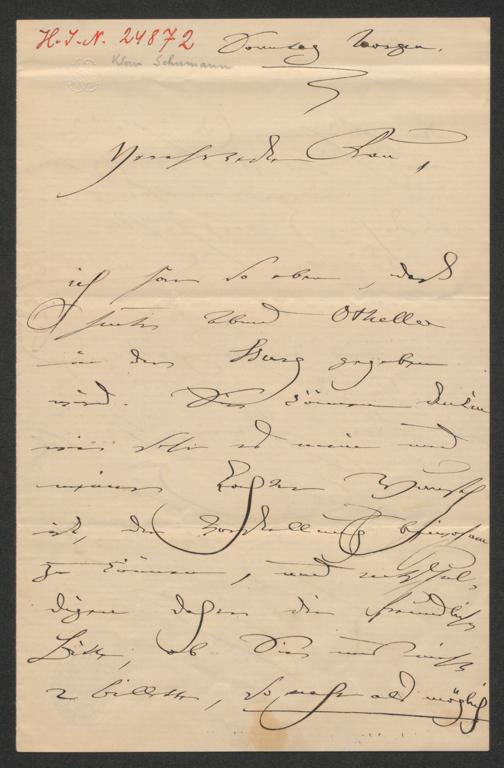 H.I.N. 24872 Sonntag Morgen.
Klara Schumann
Verehrteste Frau,
ich höre so eben, daß
heute Abend Othello
in der Burg gegeben
wird. Sie können denken
wie sehr es mein und
meiner Tochter Wunsch
ist, der Vorstellung beiwohnen
zu können, und entschul-
digen daher die freundliche
Bitte, ob Sie uns nicht
2 billette, so nahe als möglich